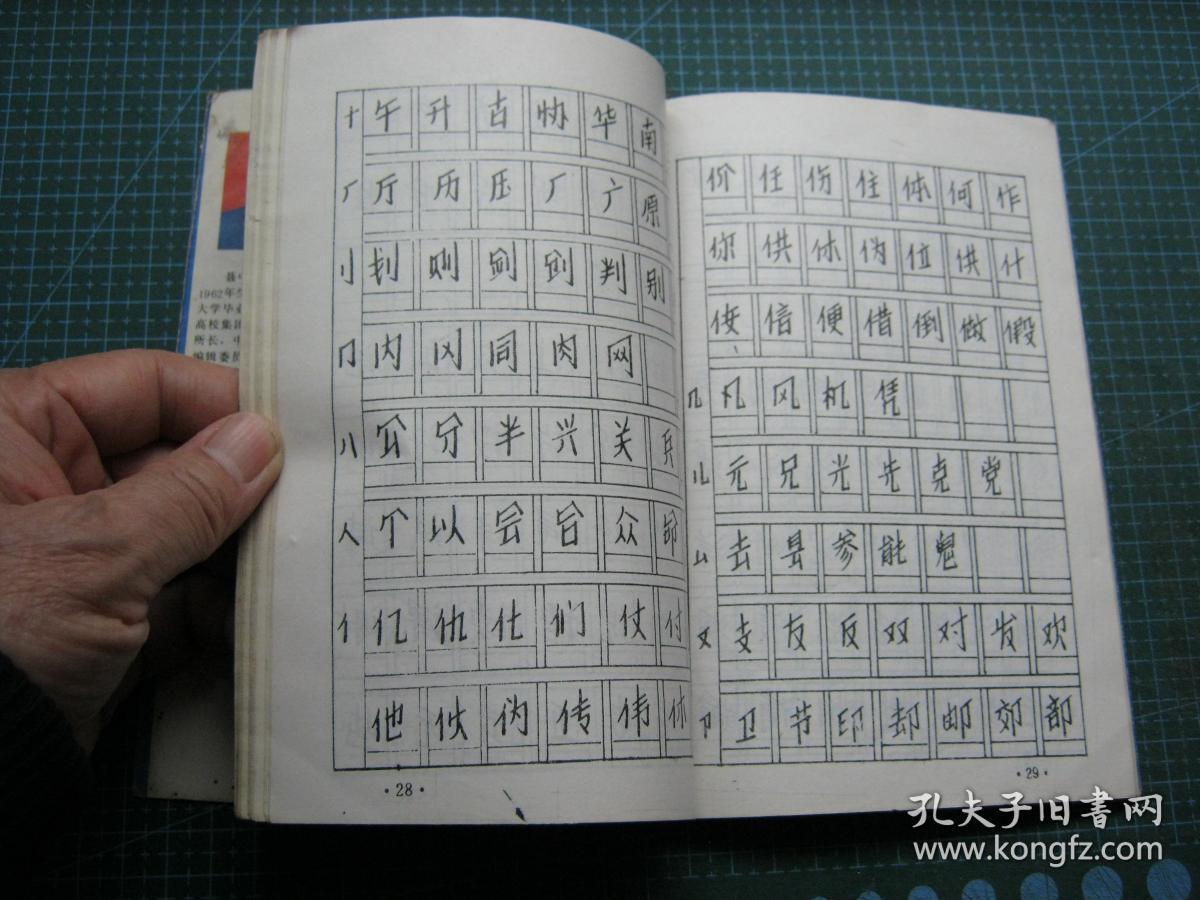 十 午 升 古 协 华 南
厂 厅 历 压 厂 原
刂 划 则 剑 判 别
冂 内 冈 同 肉 网
八 公 分 半 兴 关 兵
人 个 以 会 合 众
亻 亿 仇 化 们 仗 付
他 伙 伪 传 伟 休
·28·
价 任 伤 住 体 何 作
你 供 休 伪 位 供 什
使 信 便 借 倒 做 假
几 凡 风 机 凭
儿 元 兄 光 先 克 党
厶 去 县 参 能
又 支 友 反 双 对 发 欢
卩 卫 节 印 却 邮 郊 部
·29·
1962年
大学毕业
高校集团
所长，中
编辑委员
孔夫子旧书网
www.kongfz.com